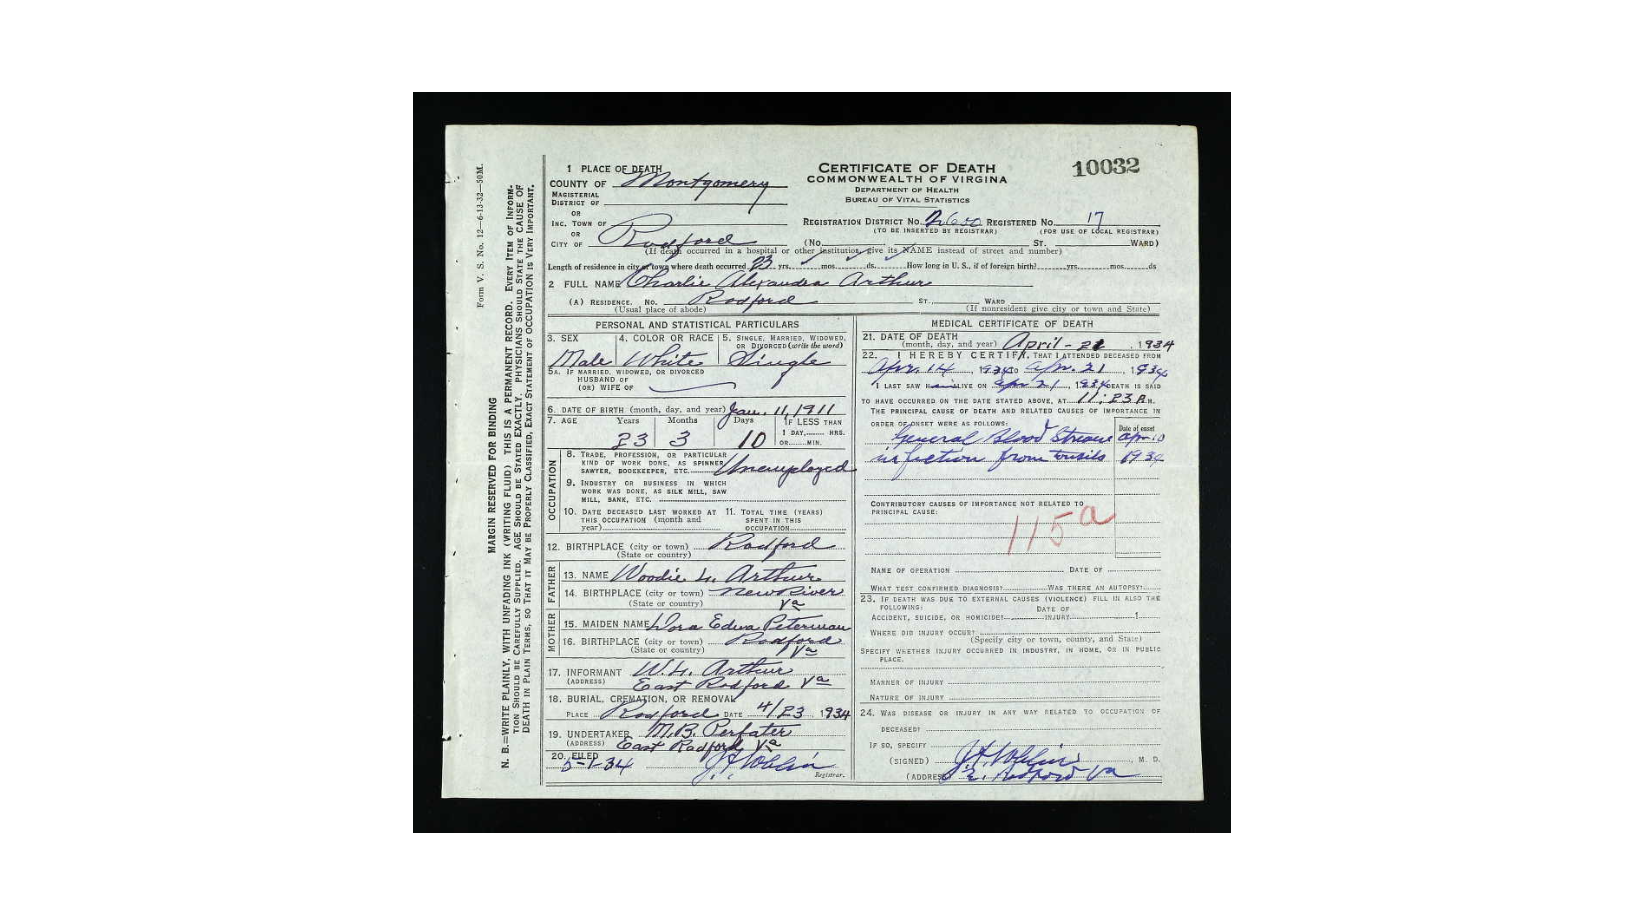 1 PLACE OF DEATH
COUNTY OF Montgomery
MAGISTERIAL
DISTRICT OF
OR
INC. TOWN OF
OR
CITY OF Radford
CERTIFICATE OF DEATH
COMMONWEALTH OF VIRGINIA
DEPARTMENT OF HEALTH
BUREAU OF VITAL STATISTICS
10032
REGISTRATION DISTRICT NO. REGISTERED NO. 17
(TO BE INSERTED BY REGISTRAR) (FOR USE OF LOCAL REGISTRAR)
(No. ST. WARD)
(If death occurred in a hospital or other institution, give its NAME instead of street and number)
Length of residence in city or town where death occurred 23 yrs. mos. ds. How long in U. S., if of foreign birth? yrs. mos. ds
2 FULL NAME Charlie Alexander Arthur
(A) RESIDENCE. No. Radford ST., WARD
(Usual place of abode) (If nonresident give city or town and State)
PERSONAL AND STATISTICAL PARTICULARS
3. SEX 4. COLOR OR RACE 5. SINGLE, MARRIED, WIDOWED,
OR DIVORCED (write the word)
Male White Single
5A. IF MARRIED, WIDOWED, OR DIVORCED
HUSBAND OF
(OR) WIFE OF
6. DATE OF BIRTH (month, day, and year) Jan. 11, 1911
7. AGE Years Months Days IF LESS THAN
1 DAY, HRS.
23 3 10 OR MIN.
OCCUPATION
8. TRADE, PROFESSION, OR PARTICULAR
KIND OF WORK DONE, AS SPINNER
SAWYER, BOOKEEPER, ETC. Unemployed
9. INDUSTRY OR BUSINESS IN WHICH
WORK WAS DONE, AS SILK MILL, SAW
MILL, BANK, ETC.
10. DATE DECEASED LAST WORKED AT
THIS OCCUPATION (month and
year)
11. TOTAL TIME (YEARS)
SPENT IN THIS
OCCUPATION
12. BIRTHPLACE (city or town) Radford
(State or country)
FATHER
13. NAME Woodie L. Arthur
14. BIRTHPLACE (city or town) New River
(State or country) Va
MOTHER
15. MAIDEN NAME Dora Edna Peterman
16. BIRTHPLACE (city or town) Radford
(State or country) Va
17. INFORMANT W. L. Arthur
(ADDRESS) East Radford Va
18. BURIAL, CREMATION, OR REMOVAL
PLACE Radford DATE 4/23, 1934
19. UNDERTAKER M. B. Perfater
(ADDRESS) East Radford Va
20. FILED
5-1-34
Registrar.
MEDICAL CERTIFICATE OF DEATH
21. DATE OF DEATH
(month, day, and year) April - 21, 1934
22. I HEREBY CERTIFY, THAT I ATTENDED DECEASED FROM
Apr. 14, 1934 TO Apr. 21, 1934
I LAST SAW H ALIVE ON Apr 21, 1934 DEATH IS SAID
TO HAVE OCCURRED ON THE DATE STATED ABOVE, AT 11:23 A.M.
THE PRINCIPAL CAUSE OF DEATH AND RELATED CAUSES OF IMPORTANCE IN
ORDER OF ONSET WERE AS FOLLOWS: Date of onset
General Blood Stream Apr 10
infection from tonsils 1934
CONTRIBUTORY CAUSES OF IMPORTANCE NOT RELATED TO
PRINCIPAL CAUSE:
115a
NAME OF OPERATION DATE OF
WHAT TEST CONFIRMED DIAGNOSIS? WAS THERE AN AUTOPSY?
23. IF DEATH WAS DUE TO EXTERNAL CAUSES (VIOLENCE) FILL IN ALSO THE
FOLLOWING: DATE OF
ACCIDENT, SUICIDE, OR HOMICIDE? INJURY 1
WHERE DID INJURY OCCUR?
(Specify city or town, county, and State)
SPECIFY WHETHER INJURY OCCURRED IN INDUSTRY, IN HOME, OR IN PUBLIC
PLACE.
MANNER OF INJURY
NATURE OF INJURY
24. WAS DISEASE OR INJURY IN ANY WAY RELATED TO OCCUPATION OF
DECEASED?
IF SO, SPECIFY
(SIGNED) , M. D.
(ADDRESS) E. Radford Va
Form V. S. No. 12—6-13-32—50M.
MARGIN RESERVED FOR BINDING
N. B.—WRITE PLAINLY, WITH UNFADING INK (WRITING FLUID) THIS IS A PERMANENT RECORD. EVERY ITEM OF INFORM-
TION SHOULD BE CAREFULLY SUPPLIED. AGE SHOULD BE STATED EXACTLY. PHYSICIANS SHOULD STATE THE CAUSE OF
DEATH IN PLAIN TERMS, SO THAT IT MAY BE PROPERLY CLASSIFIED, EXACT STATEMENT OF OCCUPATION IS VERY IMPORTANT.